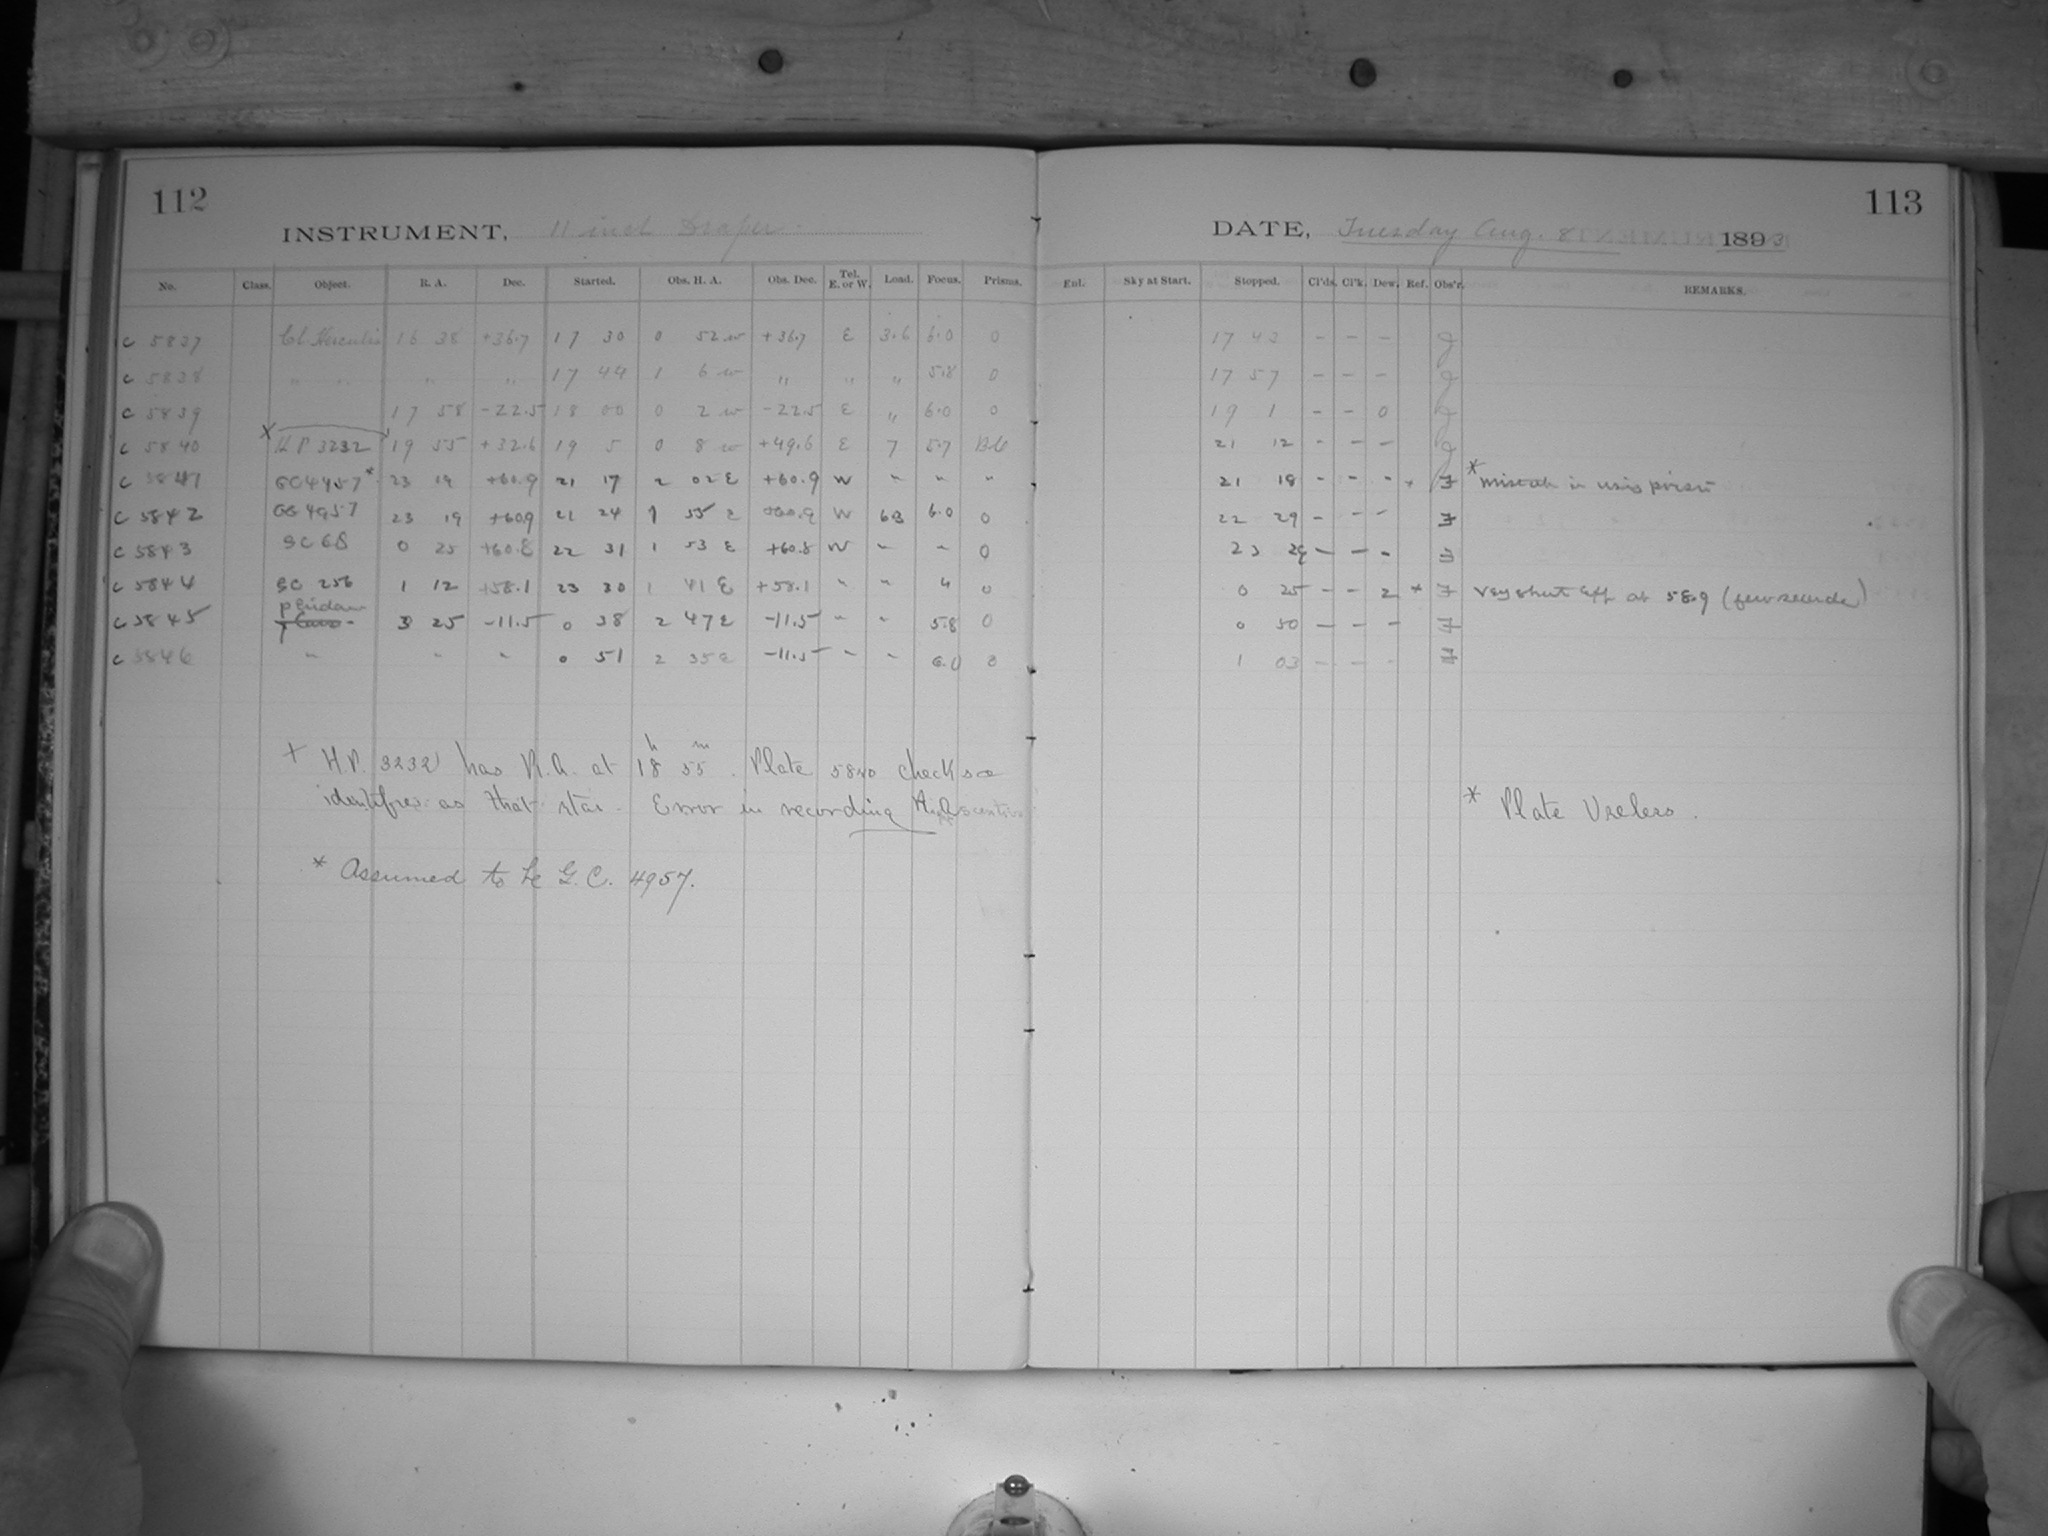 112
INSTRUMENT, 11 inch Draper.
No. Class. Object. R. A. Dec. Started. Obs. H. A. Obs. Dec. Tel. E. or W. Load. Focus. Prisms.
c 5837 Cl. Herculis 16 38 +36.7 17 30 0 52 w +36.7 E 3.6 6.0 0
c 5838 " " " " 17 44 1 6 w " " " 5.8 0
c 5839 17 58 -22.5 18 00 0 2 w -22.5 E " 6.0 0
c 5840 H P 3232 19 55 +32.6 19 5 0 8 w +49.6 E 7 5.7
c 5841 GC 4957* 23 19 +60.9 21 17 2 02 E +60.9 W " " "
c 5842 GC 4957 23 19 +60.9 21 24 1 55 E +60.9 W 6.0 0
c 5843 GC 68 0 25 +60.8 22 31 1 53 E +60.8 W " " 0
c 5844 GC 256 1 12 +58.1 23 30 1 41 E +58.1 " " 0
c 5845 3 25 -11.5 0 38 2 47 E -11.5 " " 5.8 0
c 5846 " " " 0 51 2 35 E -11.5 " " 6.0 0
+ H.P. 3232 has R.A. at 18h 55m. Plate 5840 checks
identifies as that star. Error in recording
* Assumed to be G. C. 4957.
113
DATE, Tuesday Aug. 8 1893
Enl. Sky at Start. Stopped. Cl'ds. Cl'k. Dew. Ref. Obs'r. REMARKS.
17 43 - - - J
17 57 - - - J
19 1 - - 0 J
21 12 - - - J
21 18 - - - * mistake in using prism
22 29 - - -
23 29 - - -
0 25 - - 2 at 58.9 (few seconds)
0 50 - - -
1 03 - - -
* Plate Useless.